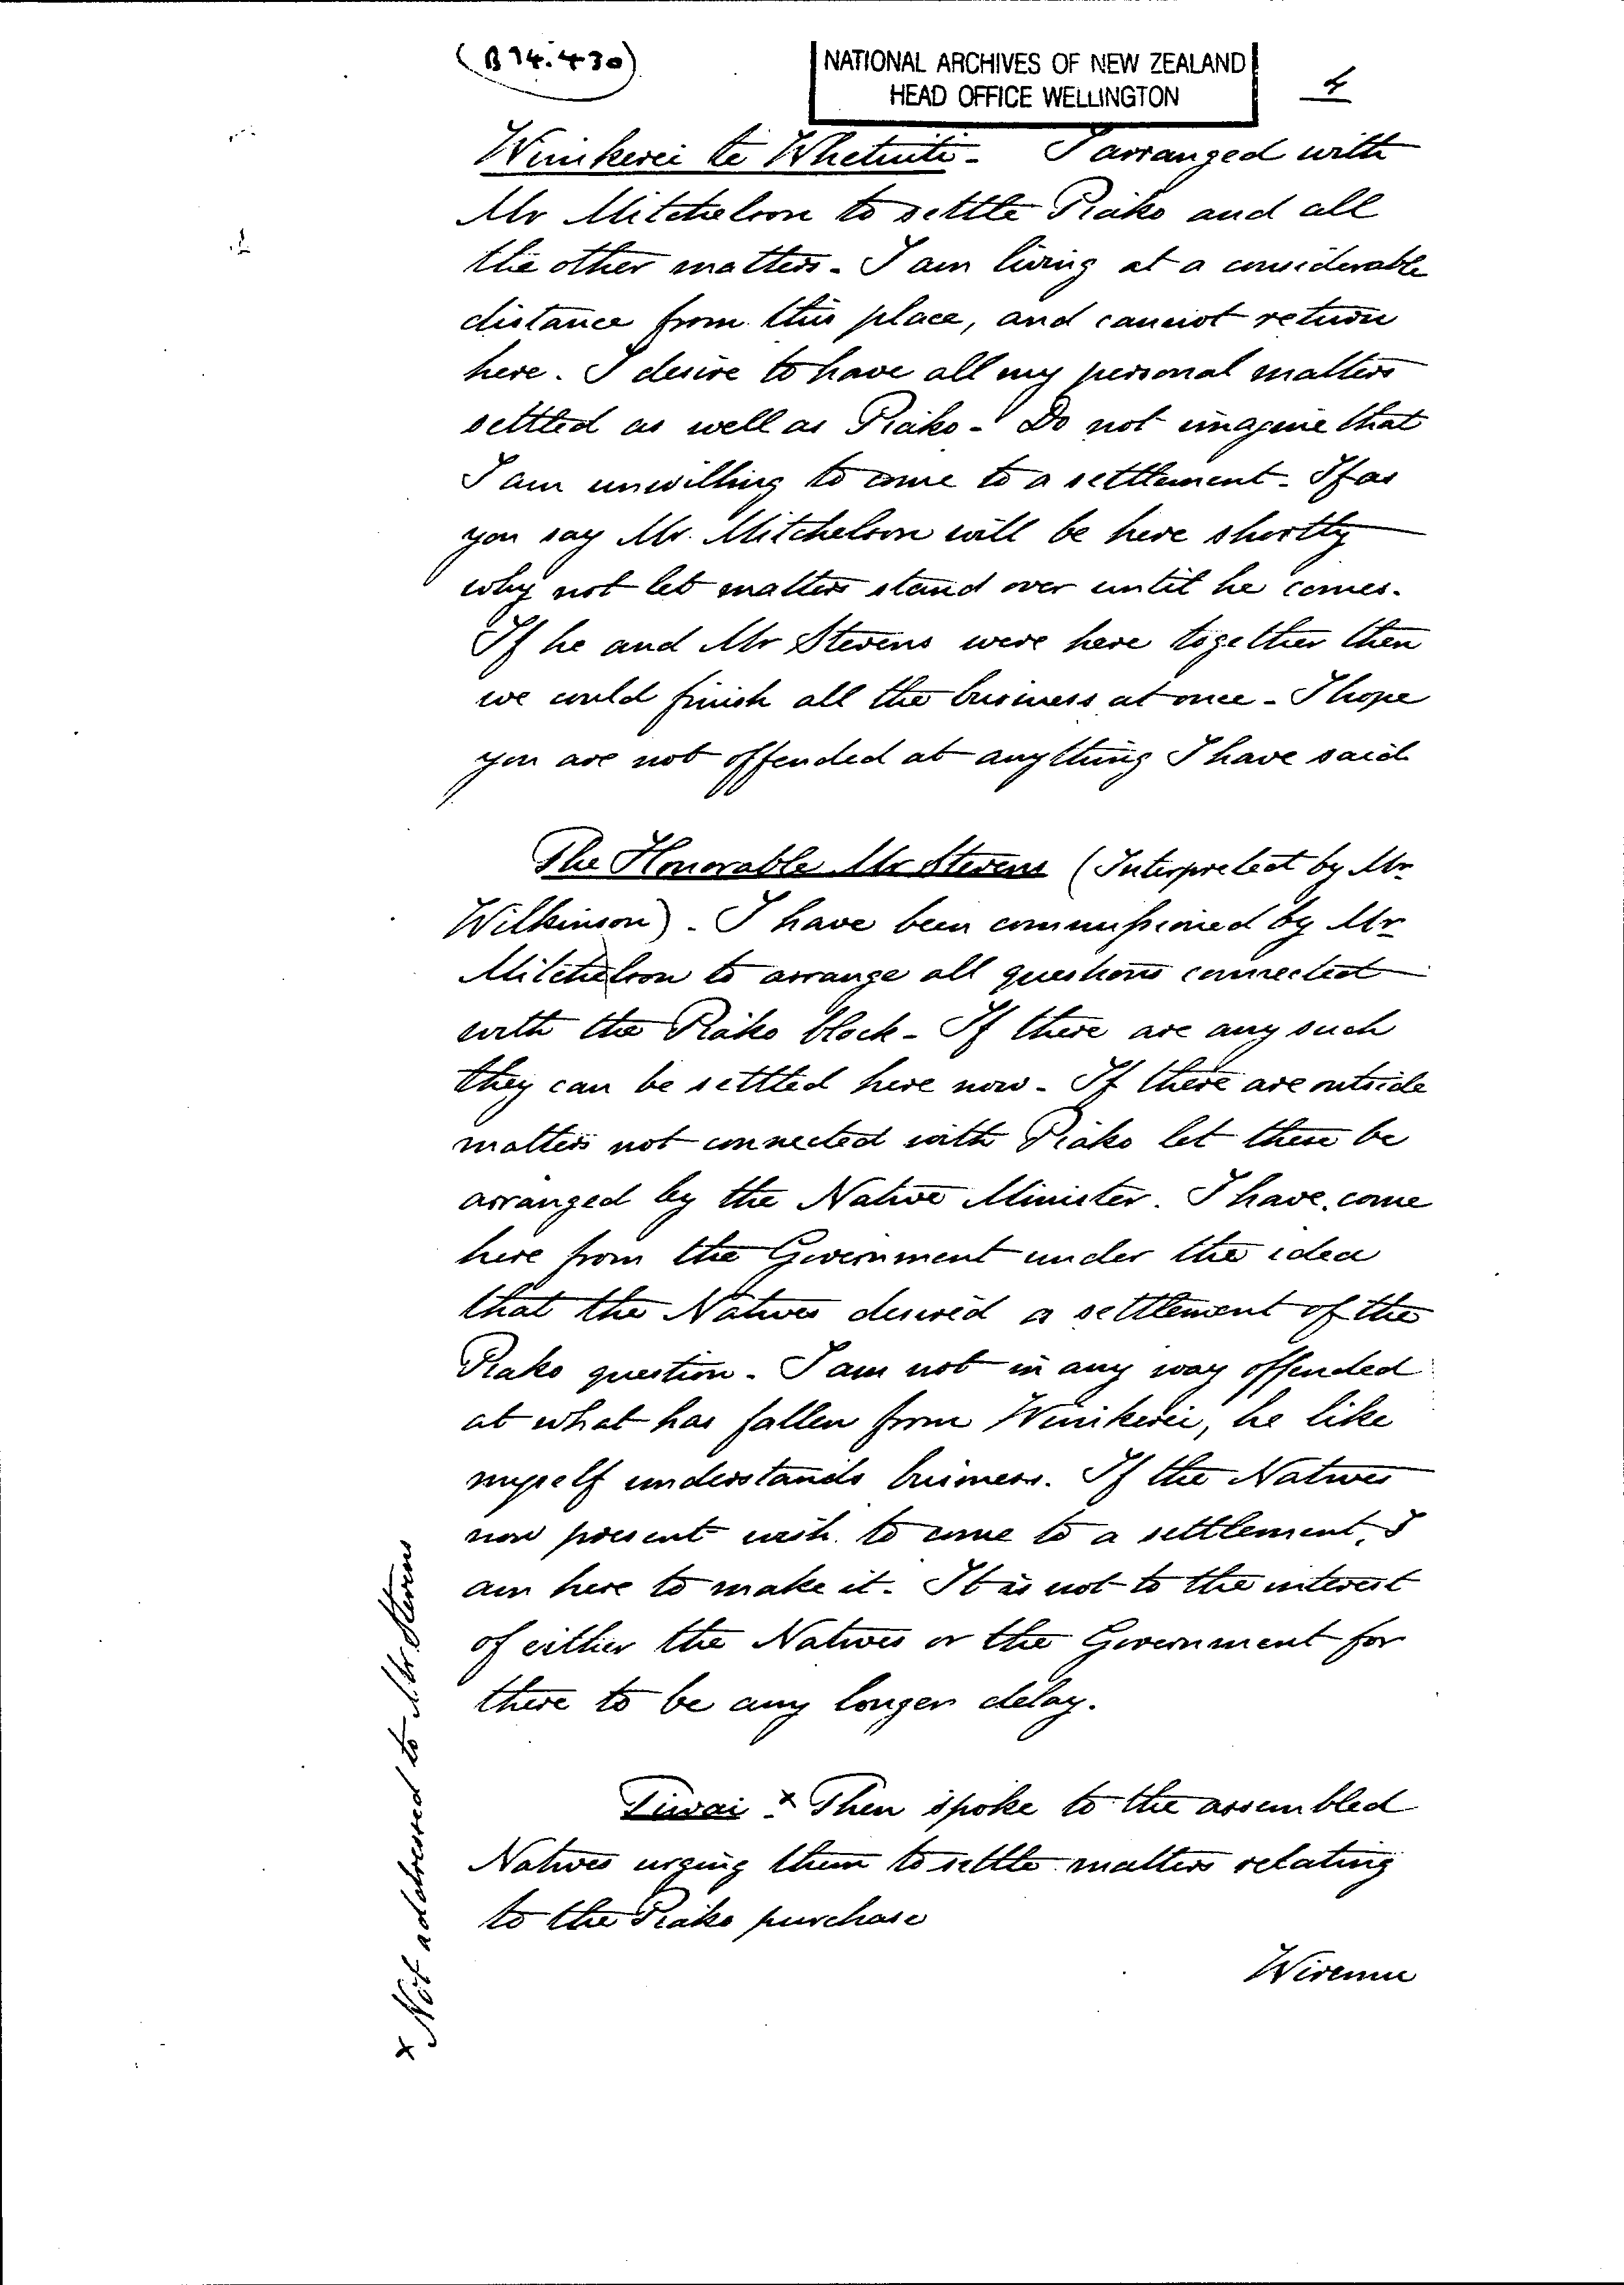 (B 14.430)
NATIONAL ARCHIVES OF NEW ZEALAND
HEAD OFFICE WELLINGTON
4
Winikerei te Whetuiti - I arranged with
Mr Mitchelson to settle Piako and all
the other matters - I am living at a considerable
distance from this place, and cannot return
here. I desire to have all my personal matters
settled as well as Piako - Do not imagine that
I am unwilling to come to a settlement - If as
you say Mr. Mitchelson will be here shortly
why not let matters stand over until he comes.
If he and Mr Stevens were here together then
we could finish all the business at once - I hope
you are not offended at anything I have said
The Honorable Mr Stevens (Interpreted by Mr
Wilkinson). I have been commissioned by Mr
Mitchelson to arrange all questions connected
with the Piako block - If there are any such
they can be settled here now - If there are outside
matters not connected with Piako let these be
arranged by the Native Minister. I have come
here from the Government under the idea
that the Natives desired a settlement of the
Piako question - I am not in any way offended
at what has fallen from Winikerei, he like
myself understands business. If the Natives
now present wish to come to a settlement, I
am here to make it. It is not to the interest
of either the Natives or the Government for
there to be any longer delay.
Tiwai x Then spoke to the assembled
Natives urging them to settle matters relating
to the Piako purchase
Wiremu
x Not addressed to Mr Stevens